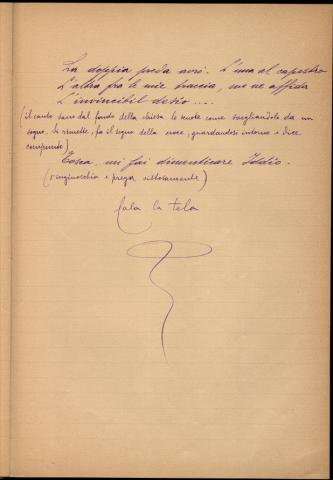 La doppia preda avrò. L'una al capestro
L'altra fra le mie braccia, me ne affida
L'invincibil desìo....
(il canto sacro dal fondo della chiesa lo scuote come svegliandolo da un
sogno. Si rimette, fa il segno della croce, guardandosi intorno e dice
compunto)
Tosca, mi fai dimenticare Iddio.
(s'inginocchia e prega
Cala la tela